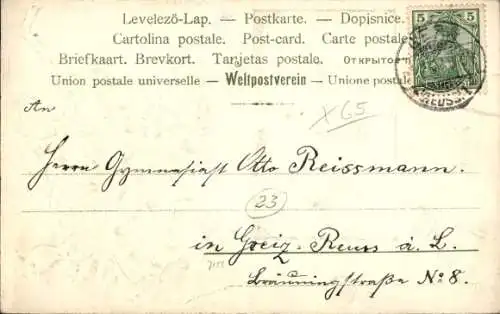 Levelező-Lap. — Postkarte. — Dopisnice.
Cartolina postale. Post-card. Carte postale
Briefkaart. Brevkort. Tarjetas postale. ОТКРЫТОЕ
Union postale universelle — Weltpostverein — Unione postale
5 5
An
X65
Herrn Gymnasiast Otto Reissmann.
23
in Greiz-Reuss ä. L.
Bräuningstraße No 8.